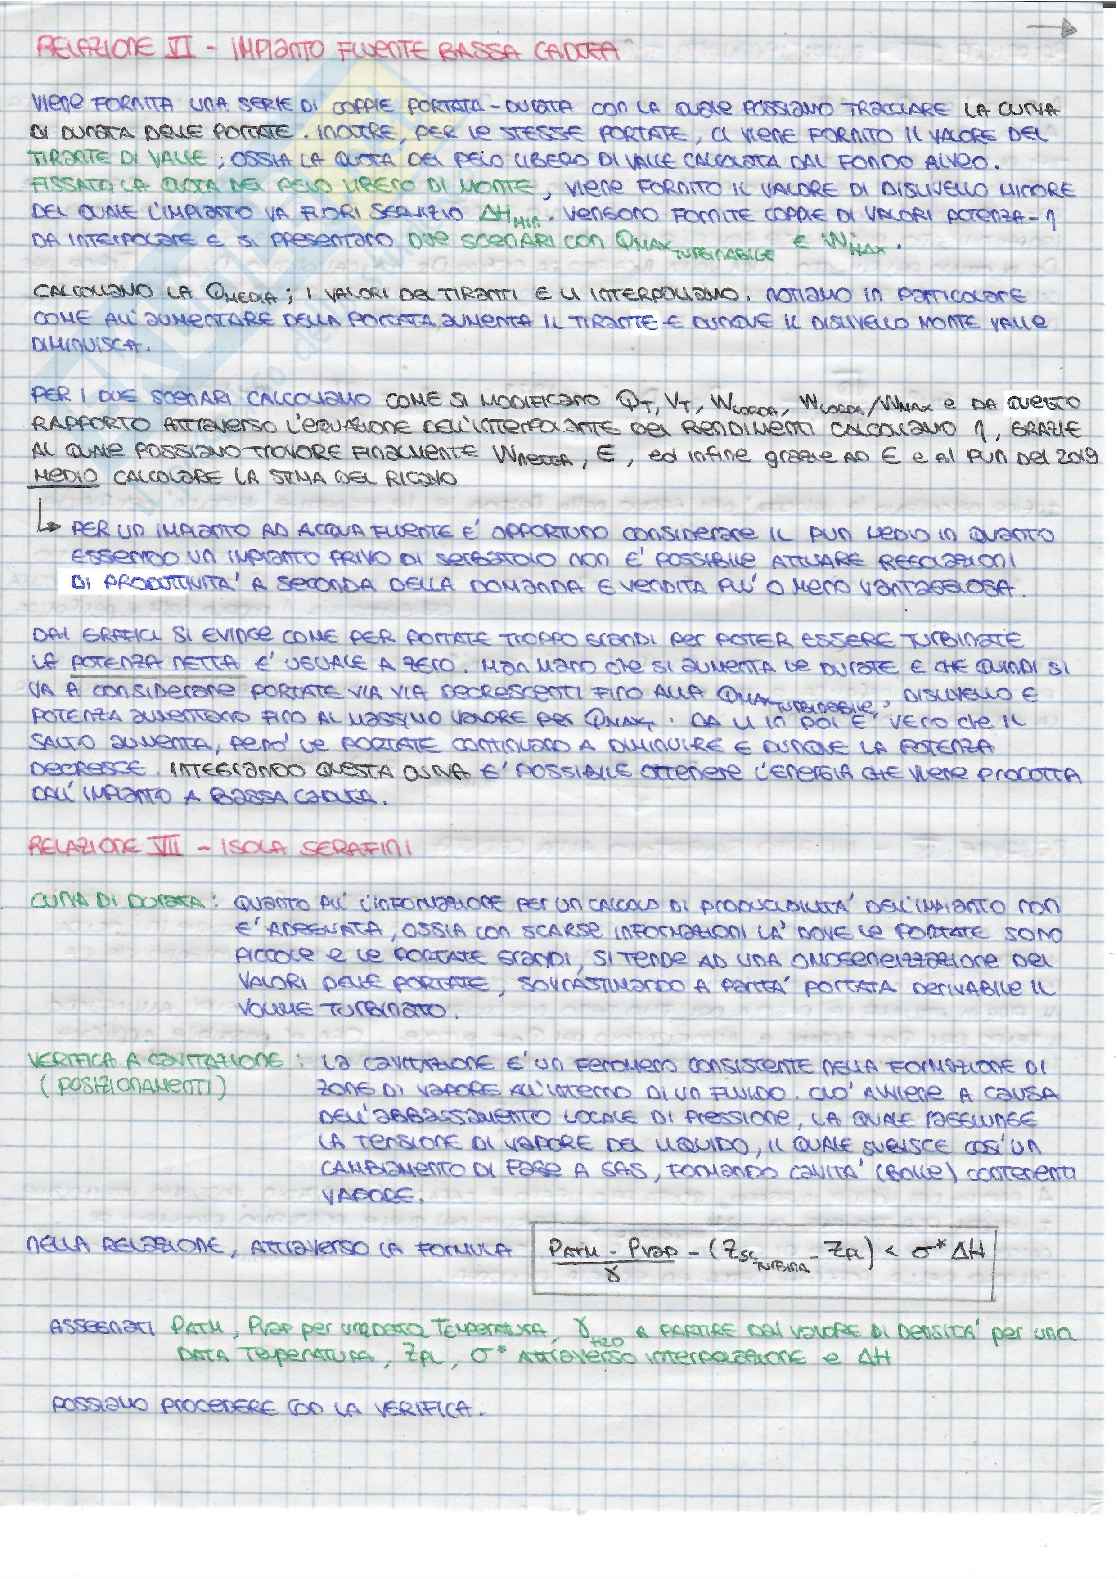 RELAZIONE VI - IMPIANTO FLUENTE BASSA CADUTA
VIENE FORNITA UNA SERIE DI COPPIE PORTATA-DURATA CON LA QUALE POSSIAMO TRACCIARE LA CURVA
DI DURATA DELLE PORTATE. INOLTRE, PER LE STESSE PORTATE, CI VIENE FORNITO IL VALORE DEL
TIRANTE DI VALLE, OSSIA LA QUOTA DEL PELO LIBERO DI VALLE CALCOLATA DAL FONDO ALVEO.
FISSATA LA QUOTA DEL PELO LIBERO DI MONTE, VIENE FORNITO IL VALORE DI DISLIVELLO MINORE
DEL QUALE L'IMPIANTO VA FUORI SERVIZIO ΔHMIN. VENGONO FORNITE COPPIE DI VALORI POTENZA-η
DA INTERPOLARE E SI PRESENTANO DUE SCENARI CON QMAX TURBINABILE E WMAX.
CALCOLIAMO LA QMEDIA; I VALORI DEI TIRANTI E LI INTERPOLIAMO. NOTIAMO IN PARTICOLARE
COME ALL'AUMENTARE DELLA PORTATA AUMENTA IL TIRANTE E DUNQUE IL DISLIVELLO MONTE VALLE
DIMINUISCA.
PER I DUE SCENARI CALCOLIAMO COME SI MODIFICANO QT, VT, WLORDA, WLORDA/WMAX E DA QUESTO
RAPPORTO ATTRAVERSO L'EQUAZIONE DELL'INTERPOLANTE DEI RENDIMENTI CALCOLIAMO η, GRAZIE
AL QUALE POSSIAMO TROVARE FINALMENTE WNETTA, E, ed infine grazie AD E e al PUN DEL 2019
MEDIO CALCOLARE LA STIMA DEL RICAVO
PER UN IMPIANTO AD ACQUA FLUENTE E' OPPORTUNO CONSIDERARE IL PUN MEDIO IN QUANTO
ESSENDO UN IMPIANTO PRIVO DI SERBATOIO NON E' POSSIBILE ATTUARE REGOLAZIONI
DI PRODUTTIVITA' A SECONDA DELLA DOMANDA E VENDITA PIU' O MENO VANTAGGIOSA.
DAI GRAFICI SI EVINCE COME PER PORTATE TROPPO GRANDI PER POTER ESSERE TURBINATE
LA POTENZA NETTA E' UGUALE A ZERO. MAN MANO CHE SI AUMENTA LE DURATE E CHE QUINDI SI
VA A CONSIDERARE PORTATE VIA VIA DECRESCENTI FINO ALLA QMAX TURBINABILE, DISLIVELLO E
POTENZA AUMENTANO FINO AL MASSIMO VALORE PER QMAXT. DA LI IN POI E' VERO CHE IL
SALTO AUMENTA, PERO' LE PORTATE CONTINUANO A DIMINUIRE E DUNQUE LA POTENZA
DECRESCE. INTEGRANDO QUESTA CURVA E' POSSIBILE OTTENERE L'ENERGIA CHE VIENE PRODOTTA
DALL'IMPIANTO A BASSA CADUTA.
RELAZIONE VII - ISOLA SERAFINI
CURVA DI DURATA: QUANTO PIU' L'INFORMAZIONE PER UN CALCOLO DI PRODUCIBILITA' DELL'IMPIANTO NON
E' ADEGUATA, OSSIA CON SCARSE INFORMAZIONI LA' DOVE LE PORTATE SONO
PICCOLE E LE PORTATE GRANDI, SI TENDE AD UNA OMOGENEIZZAZIONE DEI
VALORI DELLE PORTATE, SOVRASTIMANDO A PARITA' PORTATA DERIVABILE IL
VOLUME TURBINATO.
VERIFICA A CAVITAZIONE: LA CAVITAZIONE E' UN FENOMENO CONSISTENTE NELLA FORMAZIONE DI
(POSIZIONAMENTI) ZONE DI VAPORE ALL'INTERNO DI UN FLUIDO. CIO' AVVIENE A CAUSA
DELL'ABBASSAMENTO LOCALE DI PRESSIONE, LA QUALE RAGGIUNGE
LA TENSIONE DI VAPORE DEL LIQUIDO, IL QUALE SUBISCE COSI' UN
CAMBIAMENTO DI FASE A GAS, FORMANDO CAVITA' (BOLLE) CONTENENTI
VAPORE.
NELLA RELAZIONE, ATTRAVERSO LA FORMULA (PATM - PVAP)/γ - (ZSC TURBINA - ZPL) < σ* ΔH
ASSEGNATI PATM, PVAP per una DATA TEMPERATURA, γH2O A PARTIRE DAL VALORE DI DENSITA' per una
DATA TEMPERATURA, ZPL, σ* ATTRAVERSO INTERPOLAZIONE e ΔH
POSSIAMO PROCEDERE CON LA VERIFICA.